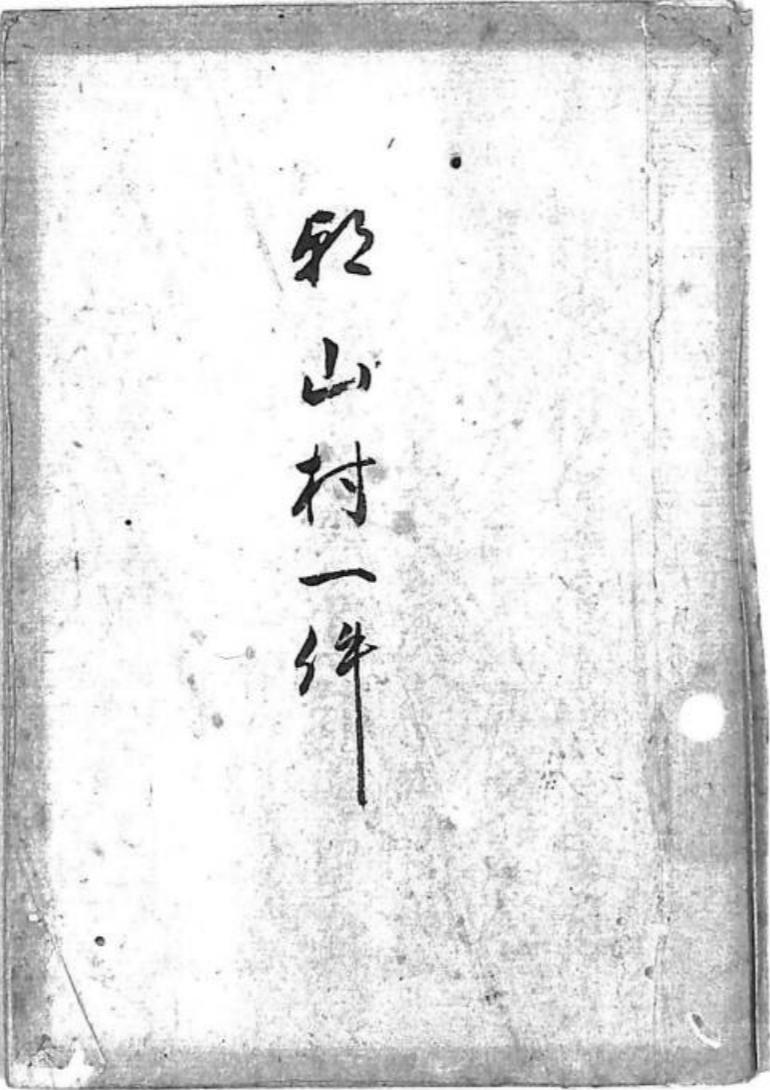 朝山村一件